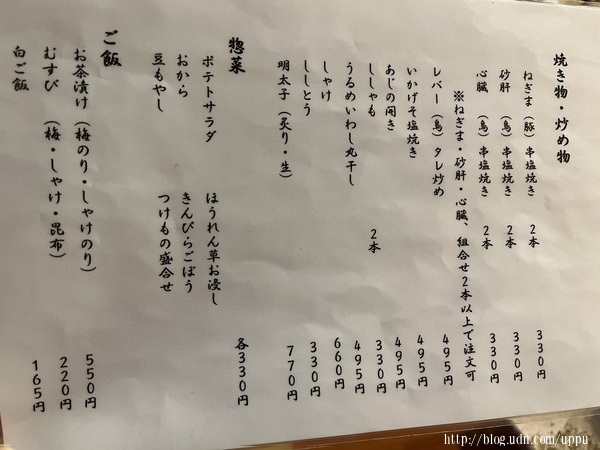 焼き物・炒め物
ねぎま（豚）串塩焼き 2本 330円
砂肝（鳥）串塩焼き 2本 330円
心臓（鳥）串塩焼き 2本 330円
※ねぎま・砂肝・心臓、組合せ2本以上で注文可
レバー（鳥）タレ炒め 495円
いかげそ塩焼き 495円
あじの開き 495円
ししゃも 2本 330円
うるめいわし丸干し 495円
しゃけ 660円
ししとう 330円
明太子（炙り・生） 770円
惣菜 各330円
ポテトサラダ ほうれん草お浸し
おから きんぴらごぼう
豆もやし つけもの盛合せ
ご飯
お茶漬け（梅のり・しゃけのり） 550円
むすび（梅・しゃけ・昆布） 220円
白ご飯 165円
http://blog.udn.com/uppu